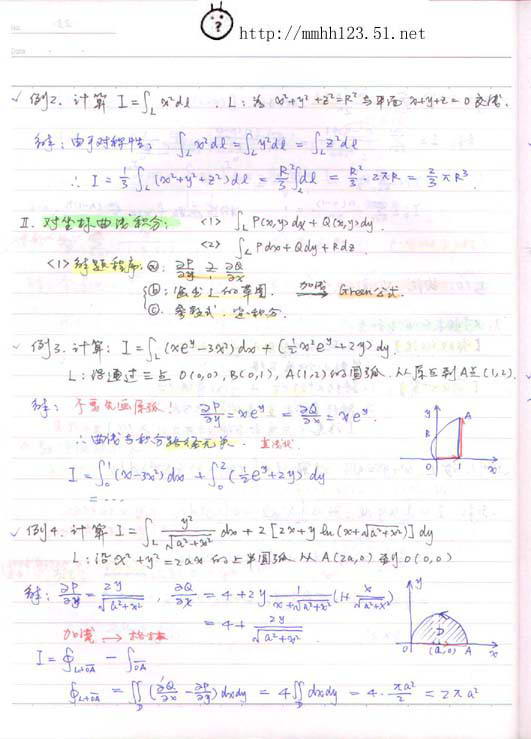 No.
Date
http://mmhh123.51.net
√ 例2. 计算 I=∫_L x²dl . L: 为 x²+y²+z²=R² 与平面 x+y+z=0 交线.
解: 由于对称性, ∫_L x²dl = ∫_L y²dl = ∫_L z²dl
∴ I = 1/3 ∫_L (x²+y²+z²)dl = R²/3 ∫_L dl = R²/3 · 2πR = 2/3 πR³.
II. 对坐标曲线积分: <1> ∫_L P(x,y)dx + Q(x,y)dy.
<2> ∫_L Pdx+Qdy+Rdz.
<1> 解题程序: ⓐ. ∂P/∂y ?= ∂Q/∂x
ⓑ. 画出 L 的草图. 加线 → Green公式.
ⓒ. 参数式. 定积分.
√ 例3. 计算: I=∫_L (xe^y-3x²)dx + (½x²e^y+2y)dy.
L: 沿通过三点 O(0,0), B(0,1), A(1,2)的圆弧. 从原点到A点(1,2).
解: 不要先画原弧! ∂P/∂y = xe^y = ∂Q/∂x = xe^y.
∴ 曲线与积分路径无关. 直线代
I = ∫_0^1 (x-3x²)dx + ∫_0^2 (½e^y+2y)dy
= ...
y A B O 1 x
√ 例4. 计算 I=∫_L y²/√(a²+x²) dx + 2[2x+y ln(x+√(a²+x²))]dy
L: 沿 x²+y²=2ax 的上半圆弧从 A(2a,0) 到 O(0,0)
解: ∂P/∂y = 2y/√(a²+x²), ∂Q/∂x = 4+2y 1/(x+√(a²+x²)) (1+ x/√(a²+x²))
= 4+ 2y/√(a²+x²).
加线 → 格林
I = ∮_{L+OA} - ∫_{OA}
y D O (a,0) A x
∮_{L+OA} = ∬_D (∂Q/∂x - ∂P/∂y)dxdy = 4∬_D dxdy = 4· πa²/2 = 2πa²